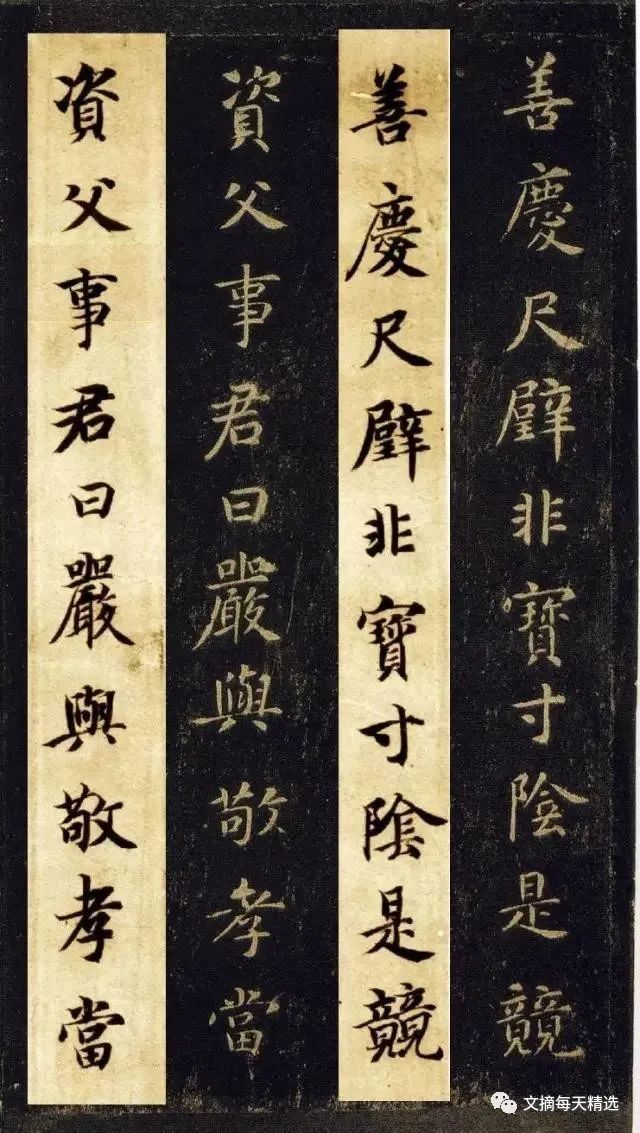 善慶尺璧非寶寸陰是競
善慶尺璧非寶寸陰是競
資父事君曰嚴與敬孝當
資父事君曰嚴與敬孝當
文摘每天精选